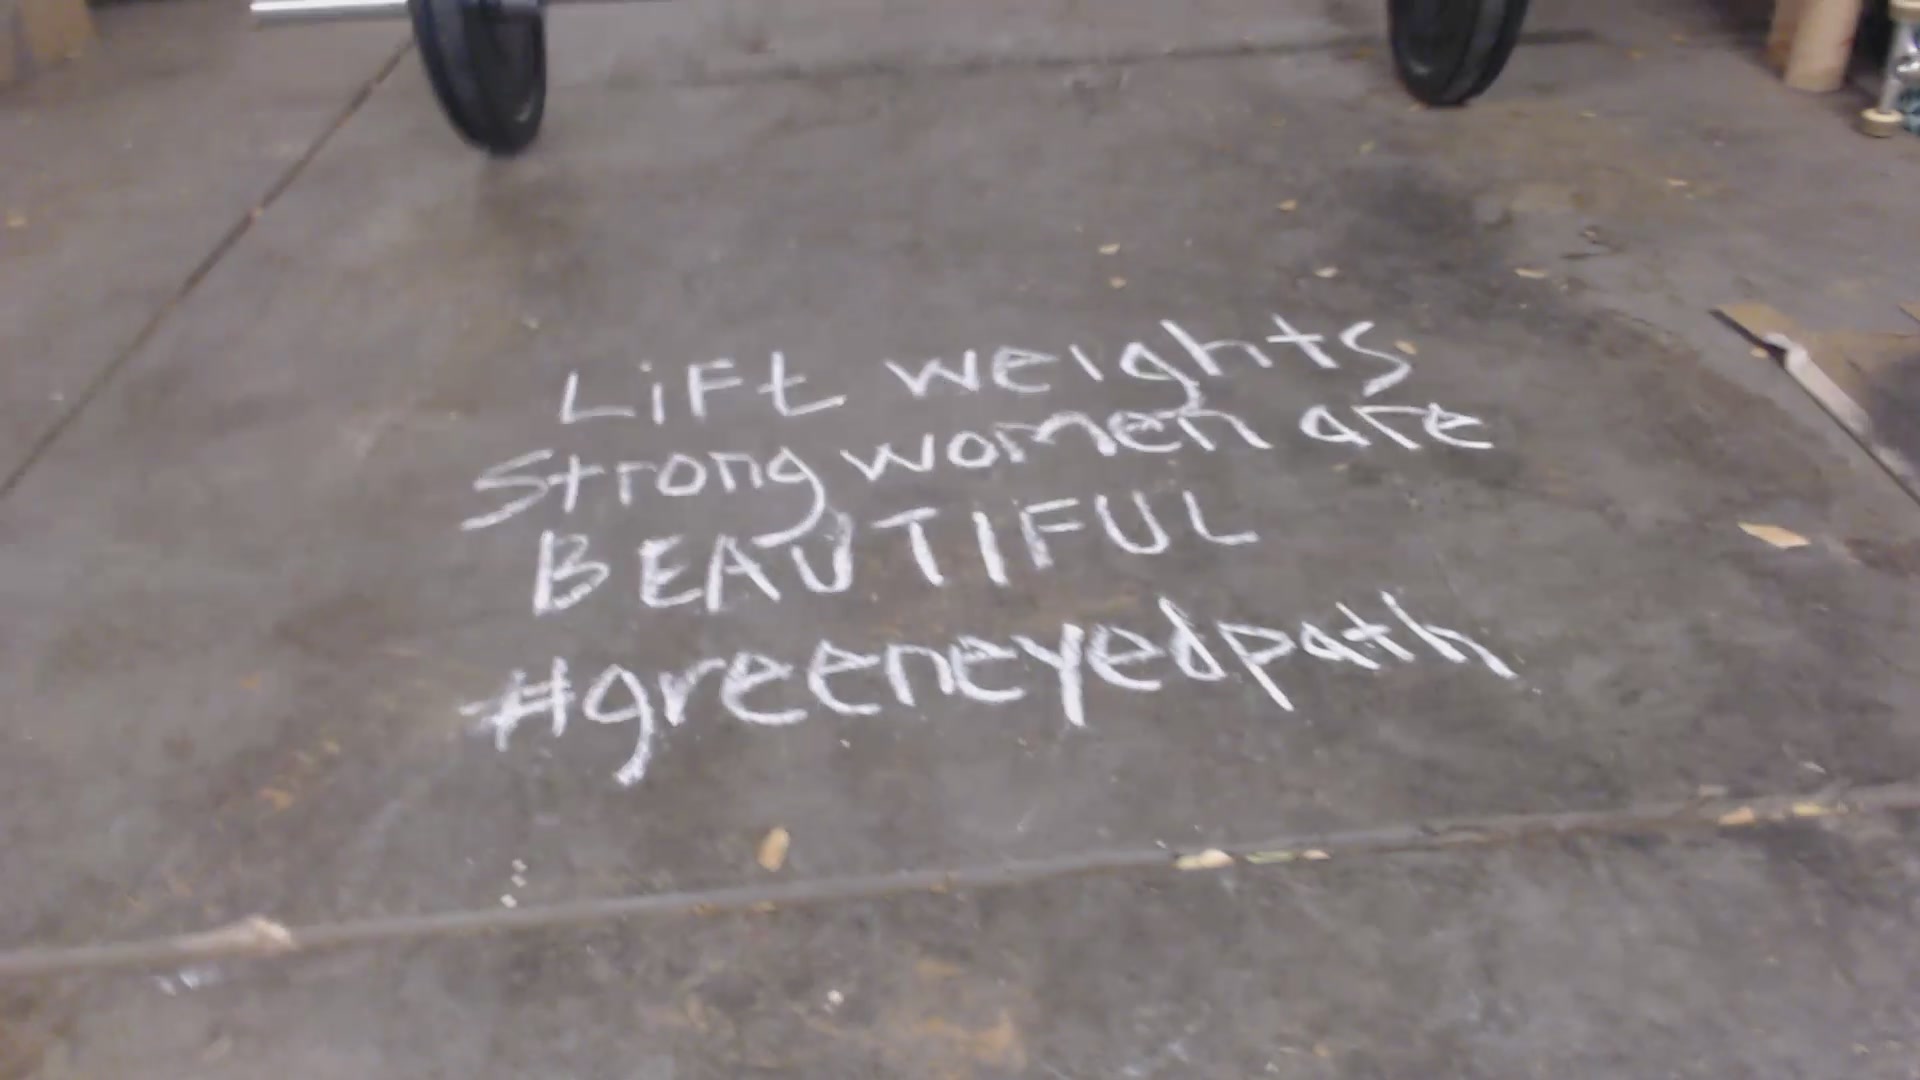 LiFt weights
Strong women are
BEAUTIFUL
#greeneyedpath